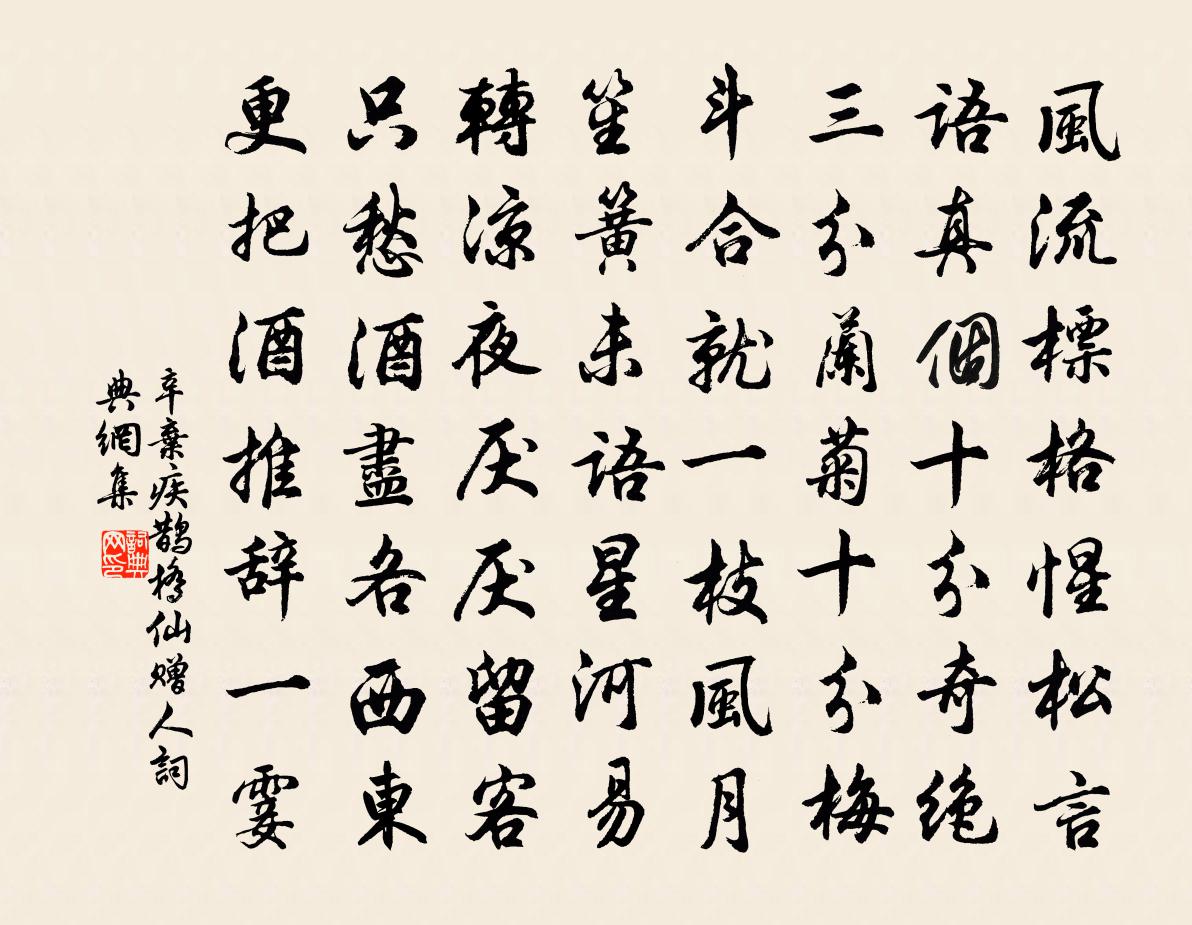 風流標格惺松言
語真個十分奇絶
三分蘭菊十分梅
斗合就一枝風月
笙簧未語星河易
轉涼夜厌厌留客
只愁酒盡各西東
更把酒推辞一霎
辛棄疾鵲橋仙赠人詞
典網集
詞典
网印